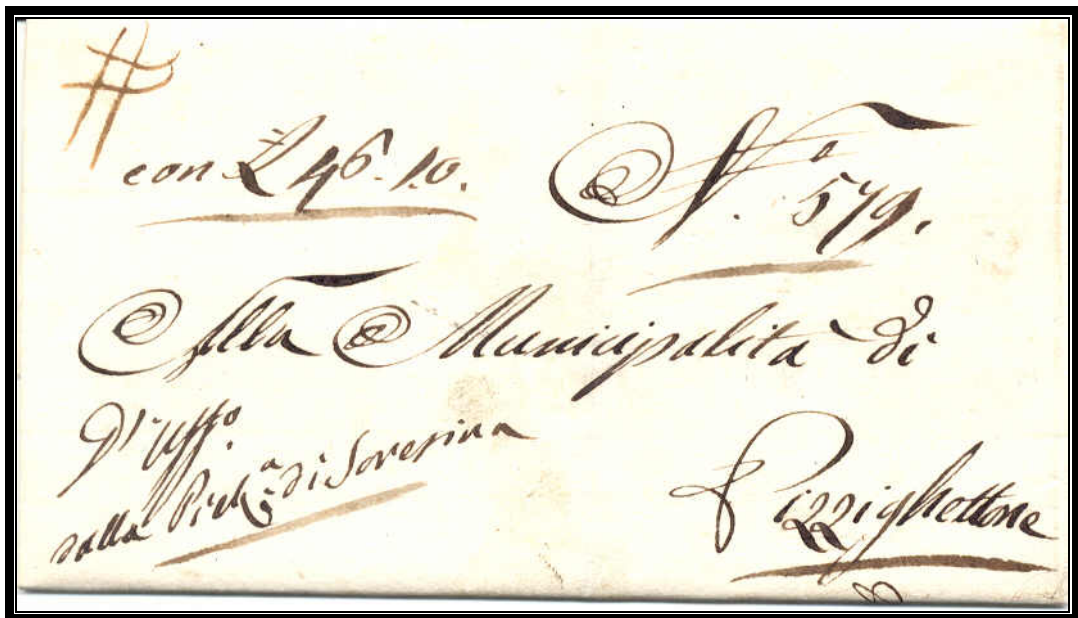 con £ 46. 10.
N.º 579.
Alla Municipalità di
D'Uffº.
dalla di Soresina
Pizzighettone